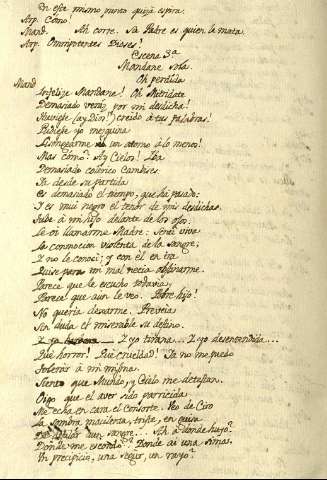 En este mismo punto quizá espira.
Arp. Cómo!
Mand. Ah corre. Su Padre es quien la mata.
Arp. Omnipotentes Dioses!
Escena 3ª
Mandane sola.
Mand Oh perdida
Infelize Mandane! Oh Mitridate
Demasiado veráz por mi desdicha!
Huviese (ay Dios!) creido á tus palabras!
Pudiese yo mezquina
Lisongearme en un atomo á lo menos!
Mas cómo? Ay Cielos! Iba
Demasiado colerico Cambises.
Ya desde su partida
Es demasiado el tiempo, que há pasado:
Y es mui negro el tenór de mis desdichas.
Tube á mi hijo delante de los ojos:
Le oí llamarme Madre: Sentí viva
La conmocion violenta de la sangre;
Y no le conocí; y con él en ira
Quise para mi mal necia obstinarme.
Parece que le escucho todavia,
Parece que aun le veo. Pobre hijo!
No queria dexarme. Preveia
Sin duda el miserable su destino.
Y yo tirana... Y yo desentendida...
Qué horror! Qué crueldad! Ya no me puedo
Tolerar á mi misma.
Siento que Mundo, y Cielo me detestan.
Oigo que el aver sido parricida
Me echa en cara el consorte. Veo de Ciro
La sombra macilenta, triste, en quien
aun sangre... Ah á donde huyo?
Donde me escondo? Donde ai una sima,
Un precipicio, una segúr, un rayo?